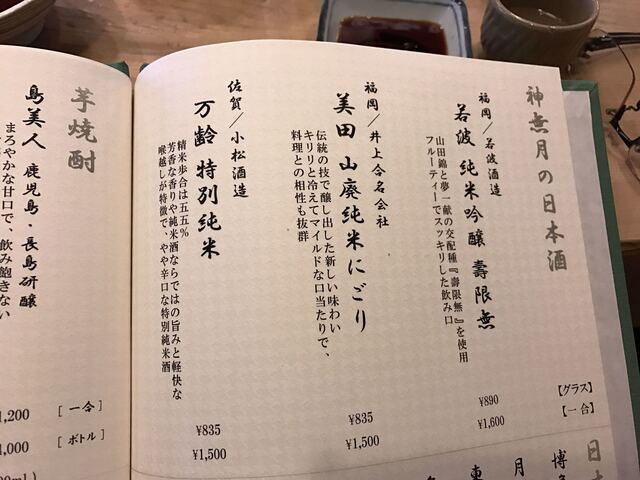 神無月の日本酒
【グラス】
【一合】
福岡／若波酒造
若波 純米吟醸 壽限無
山田錦と夢一献の交配種『壽限無』を使用
フルーティーでスッキリした飲み口
¥890
¥1,600
福岡／井上合名会社
美田 山廃純米にごり
伝統の技で醸し出した新しい味わい
キリリと冷えてマイルドな口当たりで、
料理との相性も抜群
¥835
¥1,500
佐賀／小松酒造
万齢 特別純米
精米歩合は五五％
芳香な香りや純米酒ならではの旨みと軽快な
喉越しが特徴で、やや辛口な特別純米酒
¥835
¥1,500
日本
博多
月
東
芋焼酎
島美人 鹿児島・長島研醸
まろやかな甘口で、飲み飽きない
1,200
［一合］
［ボトル］